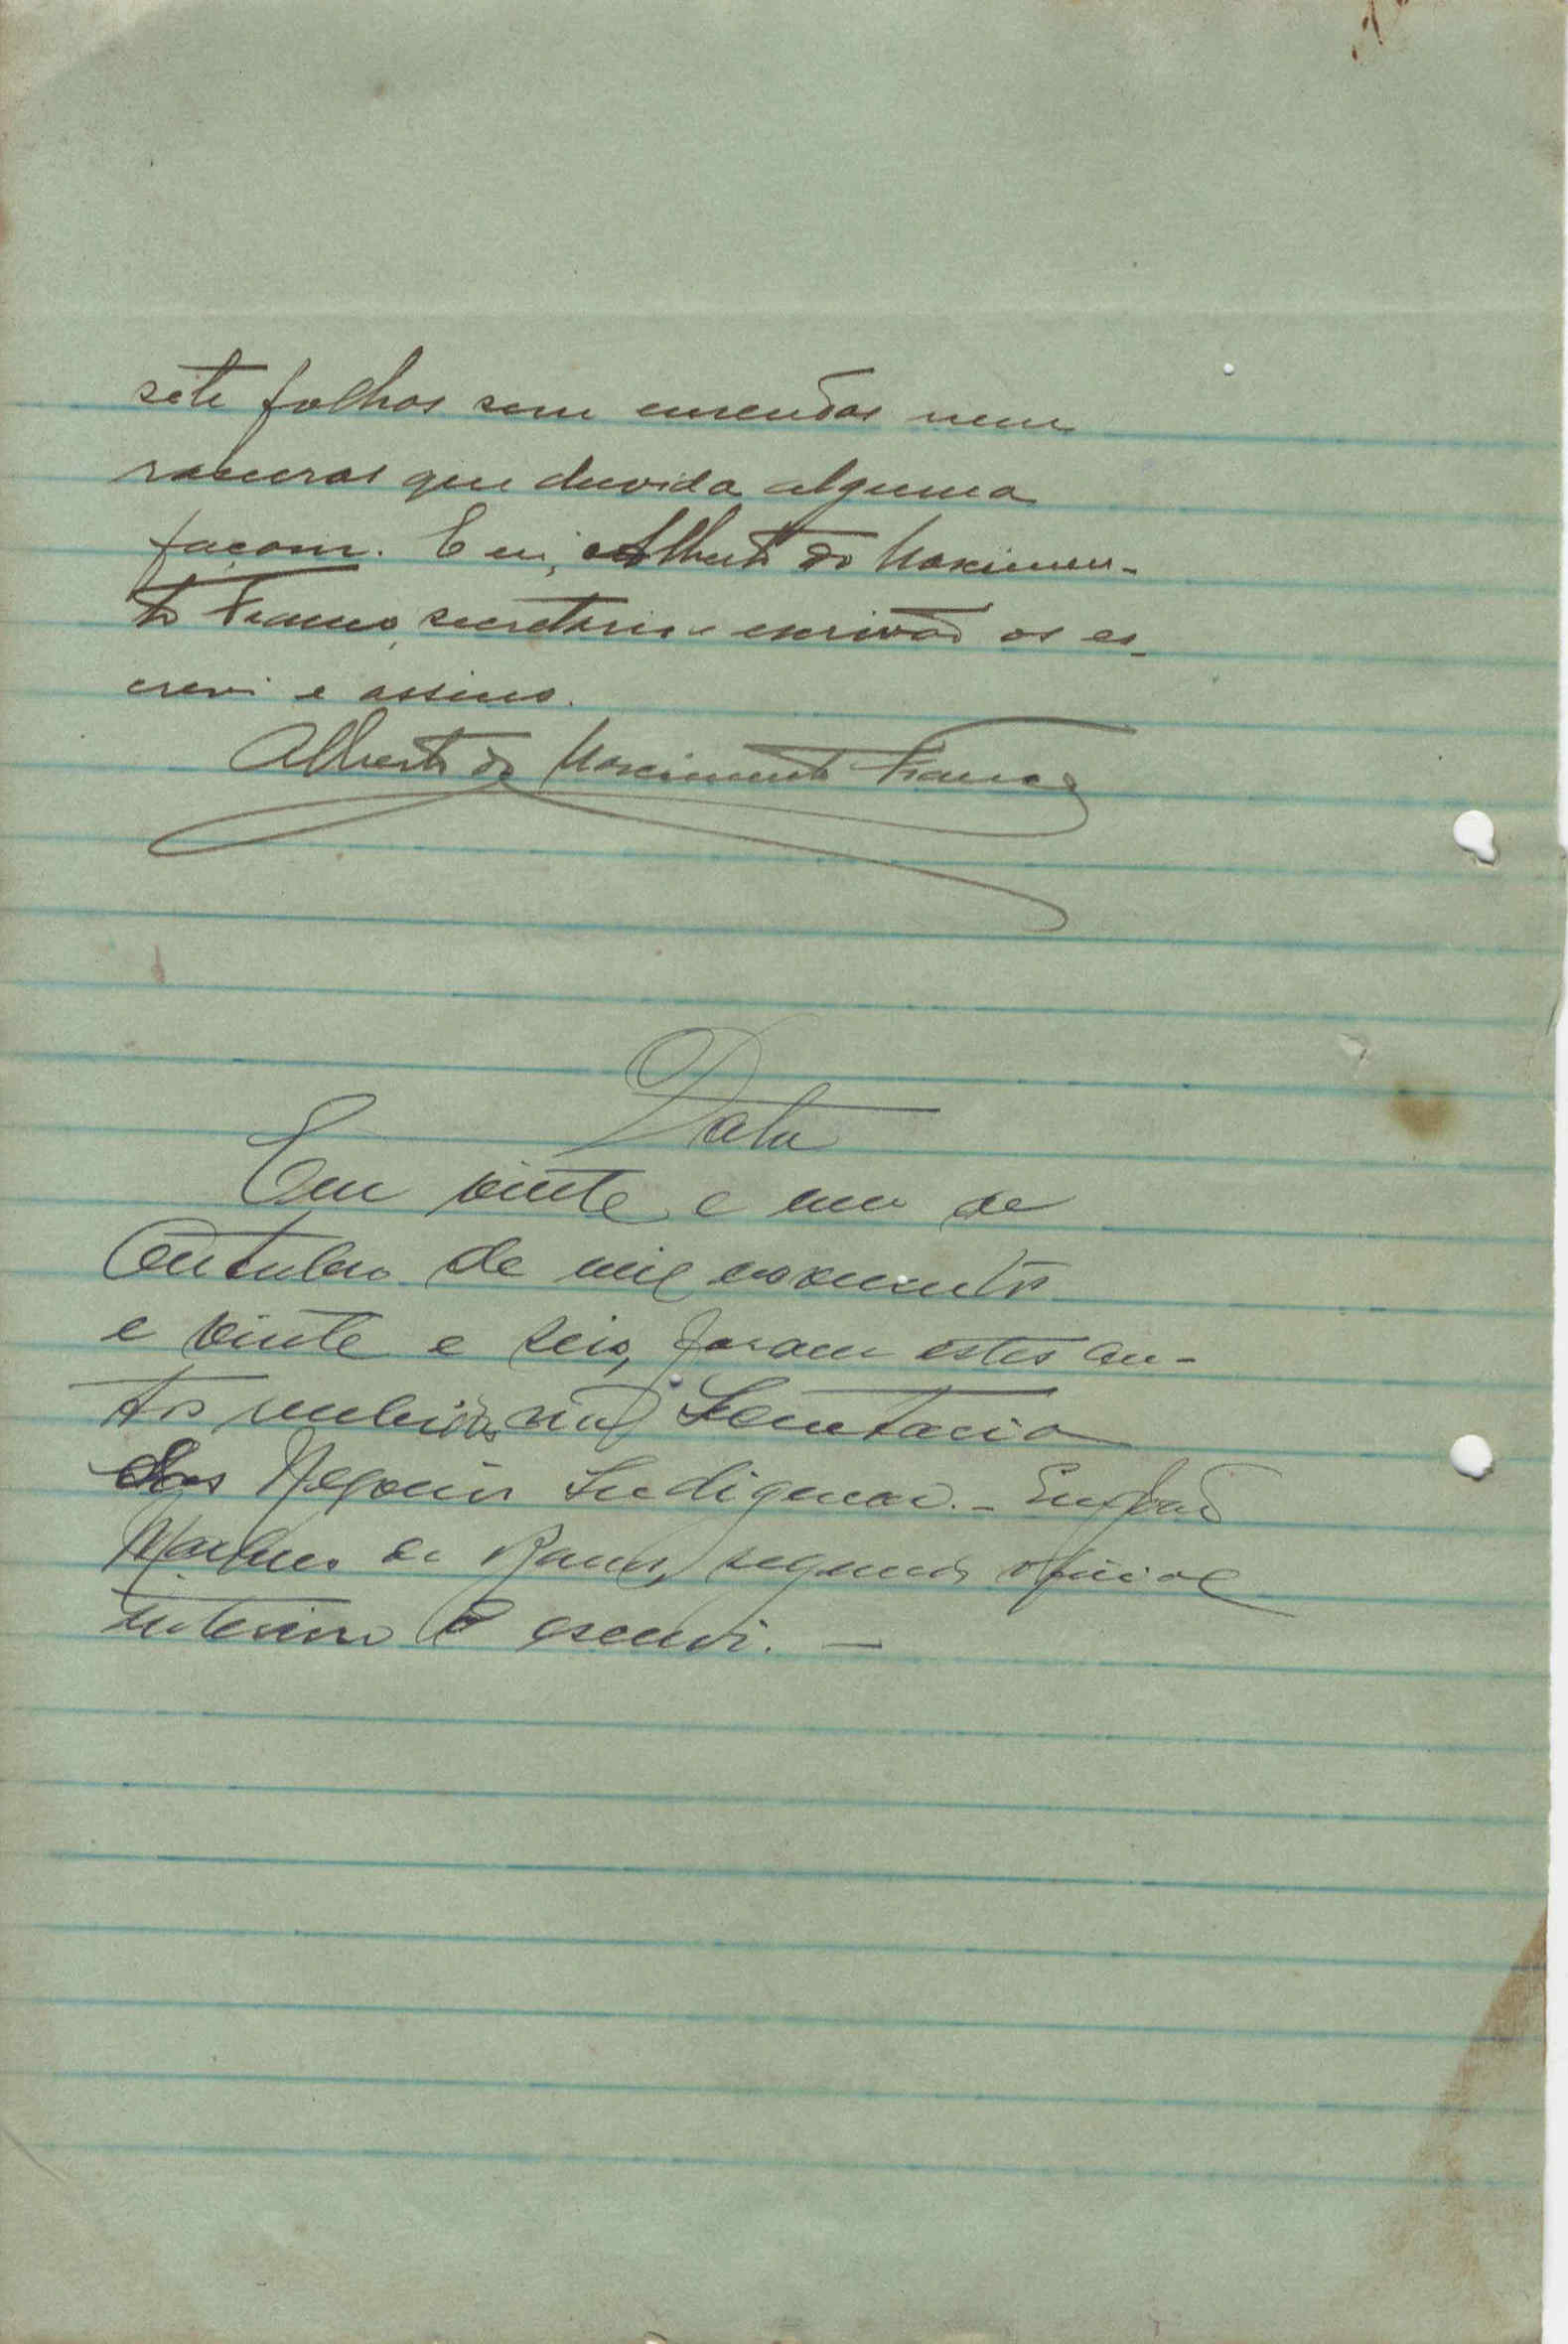 sete folhas sem emendas nem
rasuras que duvida alguma
façam. E eu, Alberto do Nascimen-
to Franco, secretario e escrivão os es-
crevi e assino.
Alberto do Nascimento Franco
Data
Em vinte e um de
Outubro de mil novecentos
e vinte e seis, foram estes au-
tos recebidos na Secretaria
dos Negocios Indigenas. - Eu, João
de Barros, segundo oficial
interino o escrevi. -